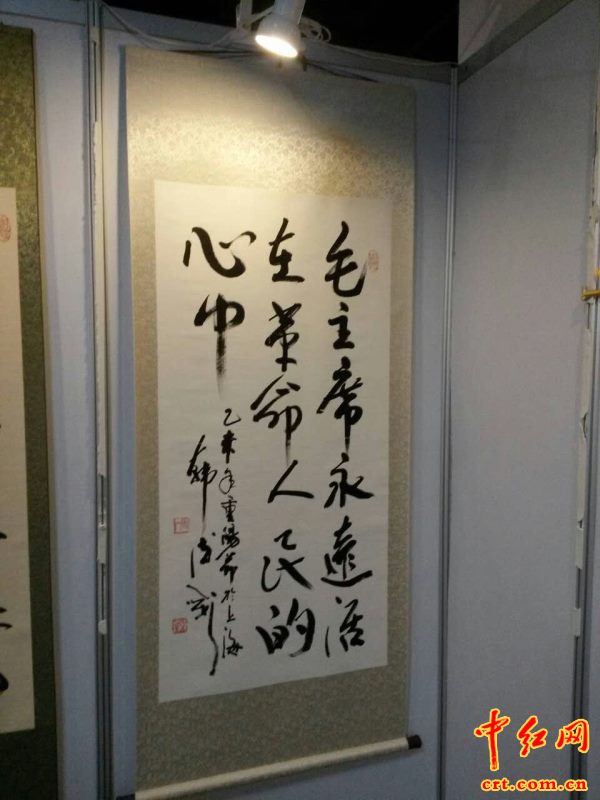 毛主席永遠活
在革命人民的
心中
乙未年重陽節於上海
韓
中红网
crt.com.cn